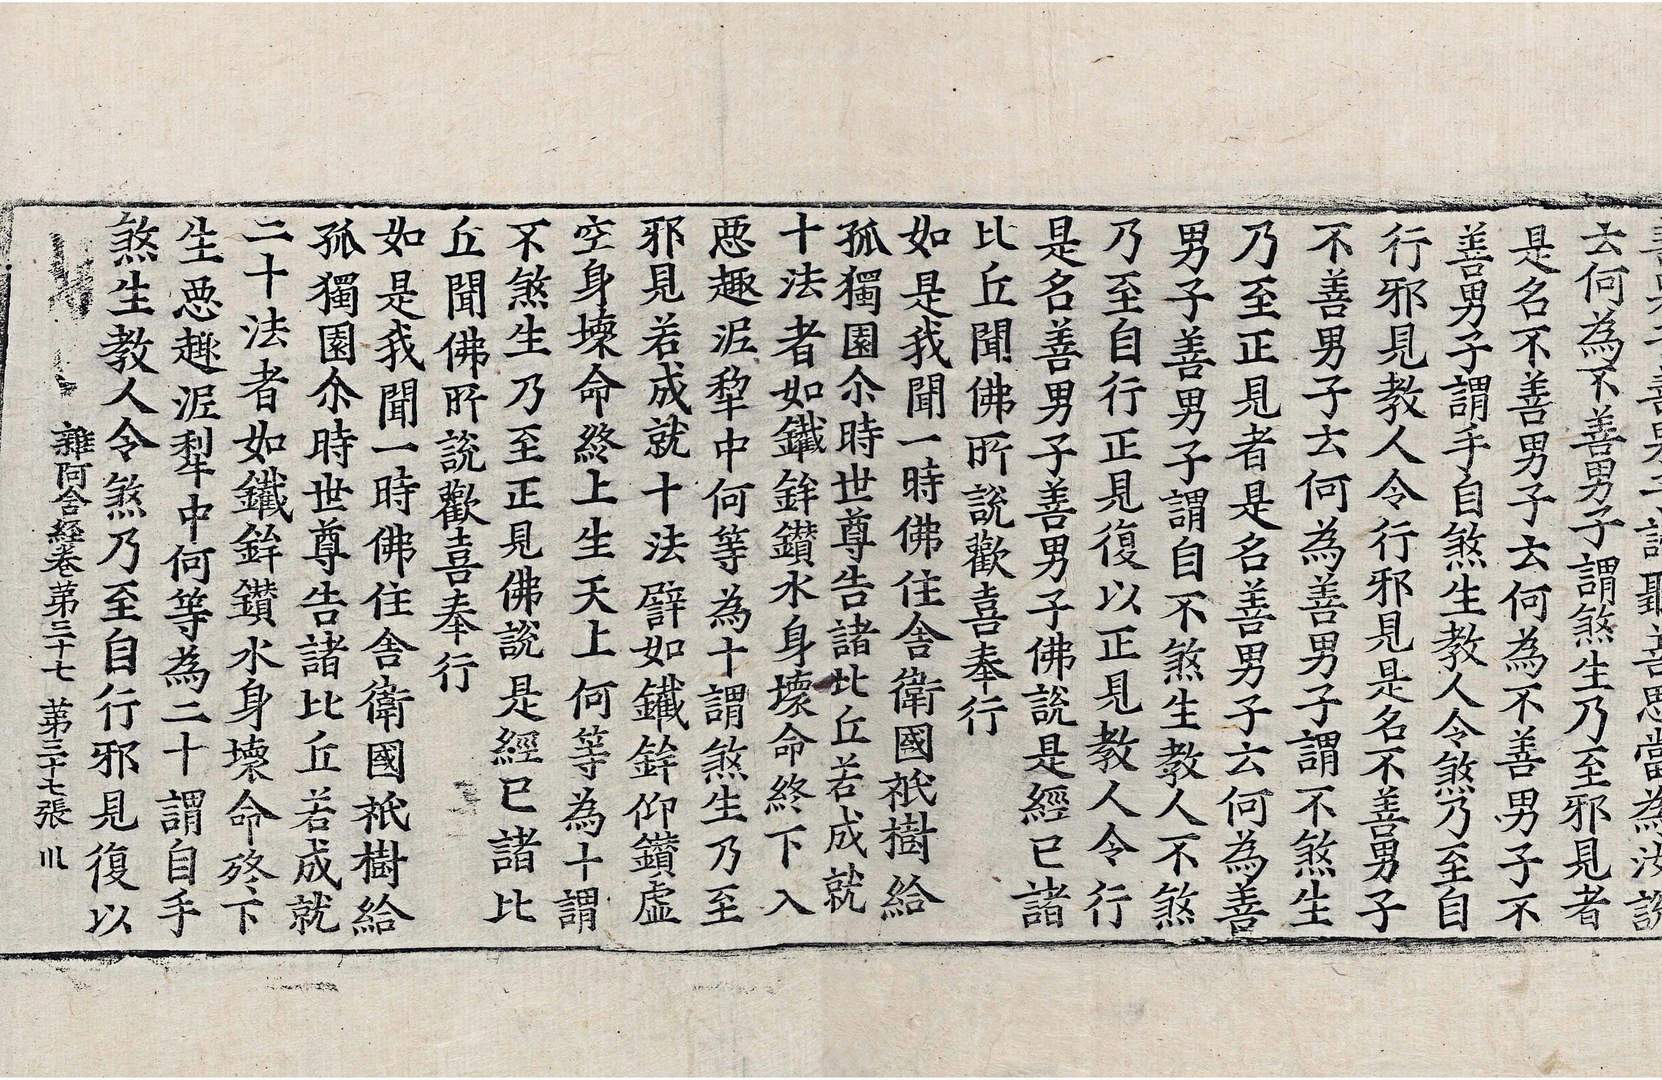 善男子善男子諦聽善思當為汝說
云何為不善男子謂煞生乃至邪見者
是名不善男子云何為不善男子不
善男子謂手自煞生教人令煞乃至自
行邪見教人令行邪見是名不善男子
不善男子云何為善男子謂不煞生
乃至正見者是名善男子云何為善
男子善男子謂自不煞生教人不煞
乃至自行正見復以正見教人令行
是名善男子善男子佛說是經已諸
比丘聞佛所說歡喜奉行
如是我聞一時佛住舍衛國祇樹給
孤獨園尒時世尊告諸比丘若成就
十法者如鐵鉾鑽水身壞命終下入
惡趣泥犁中何等為十謂煞生乃至
邪見若成就十法譬如鐵鉾仰鑽虛
空身壞命終上生天上何等為十謂
不煞生乃至正見佛說是經已諸比
丘聞佛所說歡喜奉行
如是我聞一時佛住舍衛國祇樹給
孤獨園尒時世尊告諸比丘若成就
二十法者如鐵鉾鑽水身壞命終下
生惡趣泥犁中何等為二十謂自手
煞生教人令煞乃至自行邪見復以
雜阿含經卷第三十七 第三十七張 川